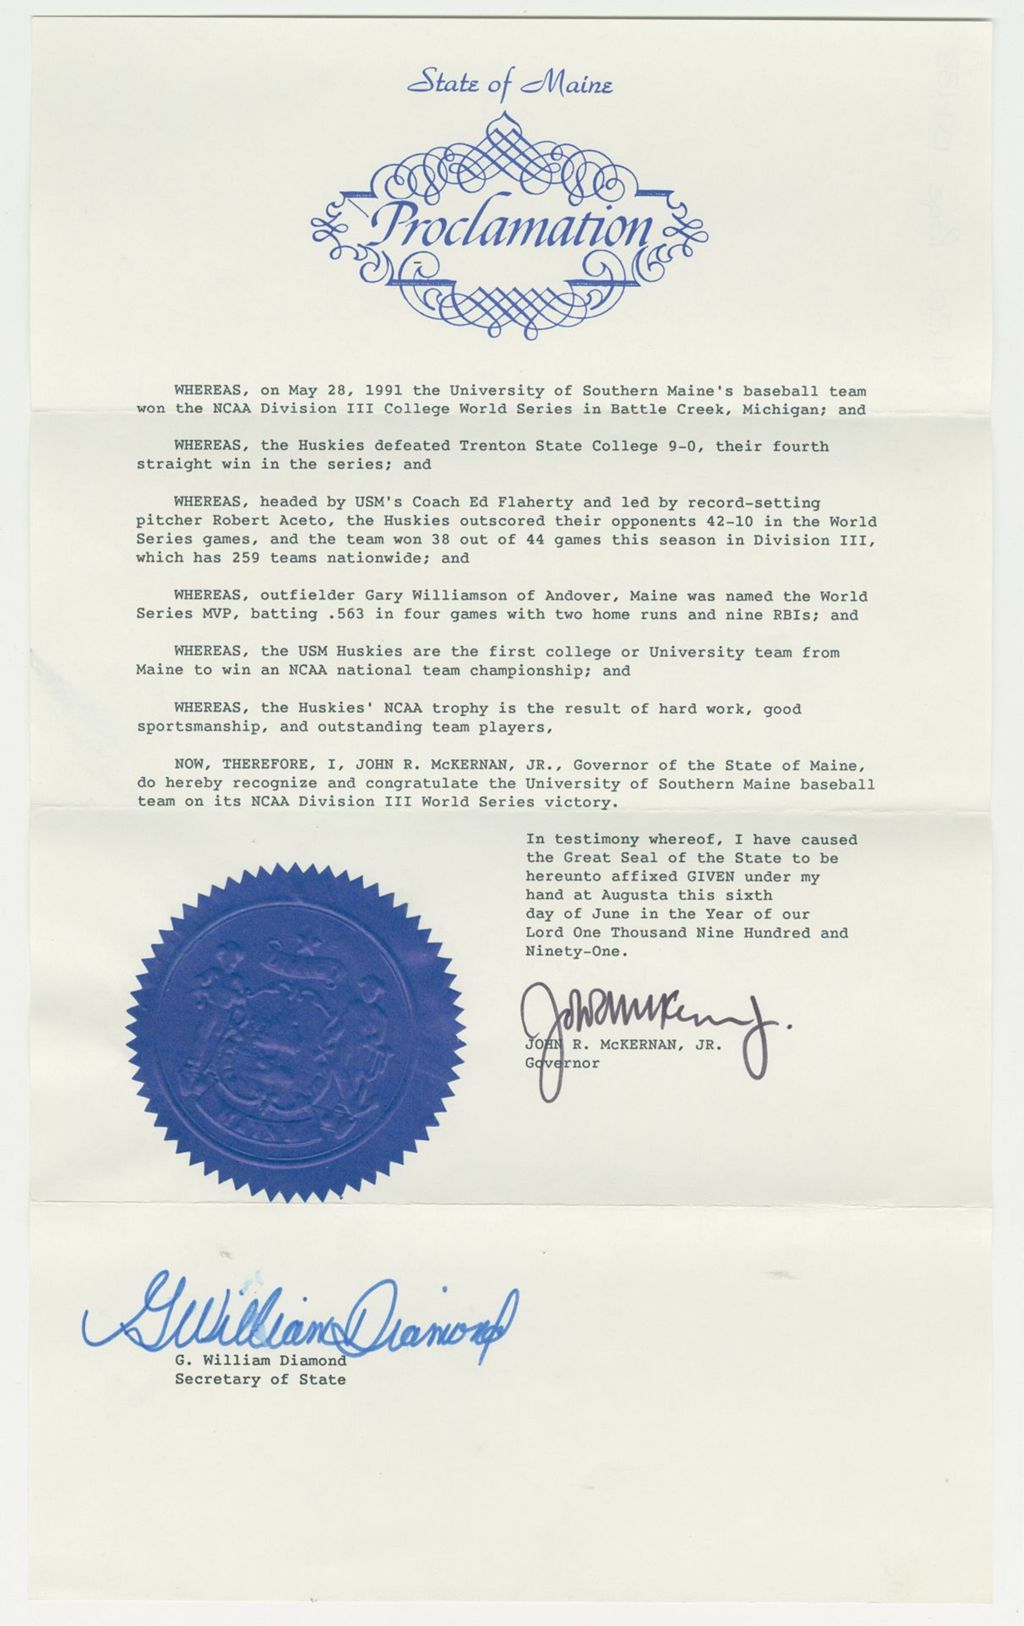 State of Maine
Proclamation
WHEREAS, on May 28, 1991 the University of Southern Maine's baseball team
won the NCAA Division III College World Series in Battle Creek, Michigan; and
WHEREAS, the Huskies defeated Trenton State College 9-0, their fourth
straight win in the series; and
WHEREAS, headed by USM's Coach Ed Flaherty and led by record-setting
pitcher Robert Aceto, the Huskies outscored their opponents 42-10 in the World
Series games, and the team won 38 out of 44 games this season in Division III,
which has 259 teams nationwide; and
WHEREAS, outfielder Gary Williamson of Andover, Maine was named the World
Series MVP, batting .563 in four games with two home runs and nine RBIs; and
WHEREAS, the USM Huskies are the first college or University team from
Maine to win an NCAA national team championship; and
WHEREAS, the Huskies' NCAA trophy is the result of hard work, good
sportsmanship, and outstanding team players,
NOW, THEREFORE, I, JOHN R. McKERNAN, JR., Governor of the State of Maine,
do hereby recognize and congratulate the University of Southern Maine baseball
team on its NCAA Division III World Series victory.
In testimony whereof, I have caused
the Great Seal of the State to be
hereunto affixed GIVEN under my
hand at Augusta this sixth
day of June in the Year of our
Lord One Thousand Nine Hundred and
Ninety-One.
JOHN R. McKERNAN, JR.
Governor
MAINE
G William Diamond
G. William Diamond
Secretary of State